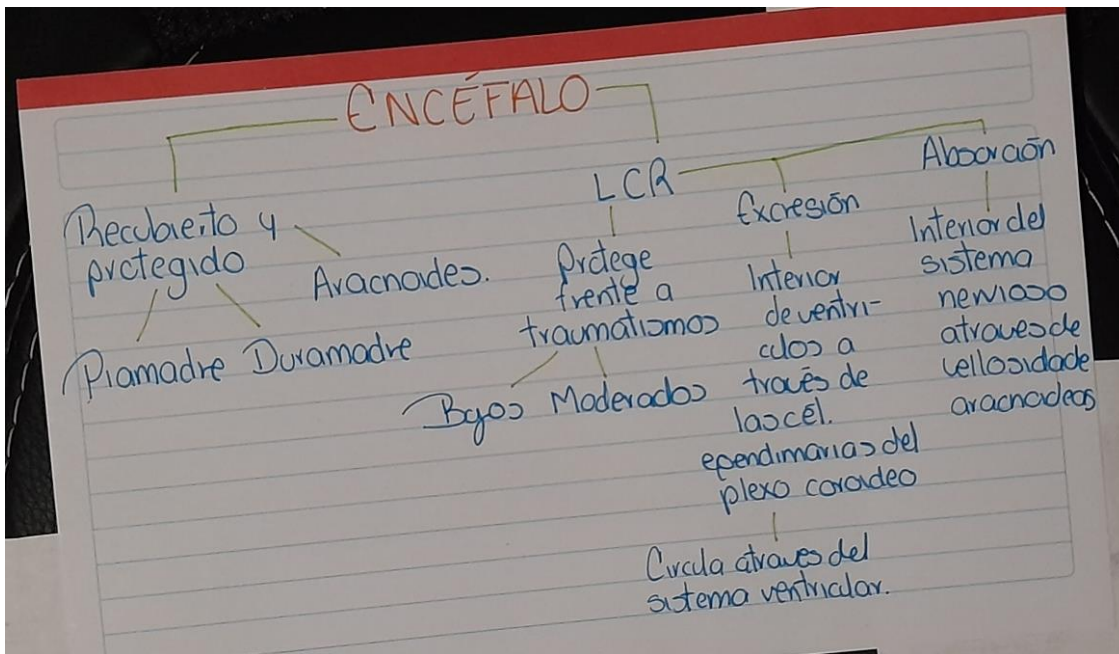 ENCÉFALO
Recubierto y
protegido
Aracnoides.
Piamadre Duramadre
LCR
Protege
frente a
traumatismos
Bajos Moderados
Excresión
Interior
de ventri-
culos a
través de
las cél.
ependimarias del
plexo coroideo
Circula atraves del
sistema ventricular.
Absorción
Interior del
sistema
nervioso
atraves de
vellosidade
aracnoideas